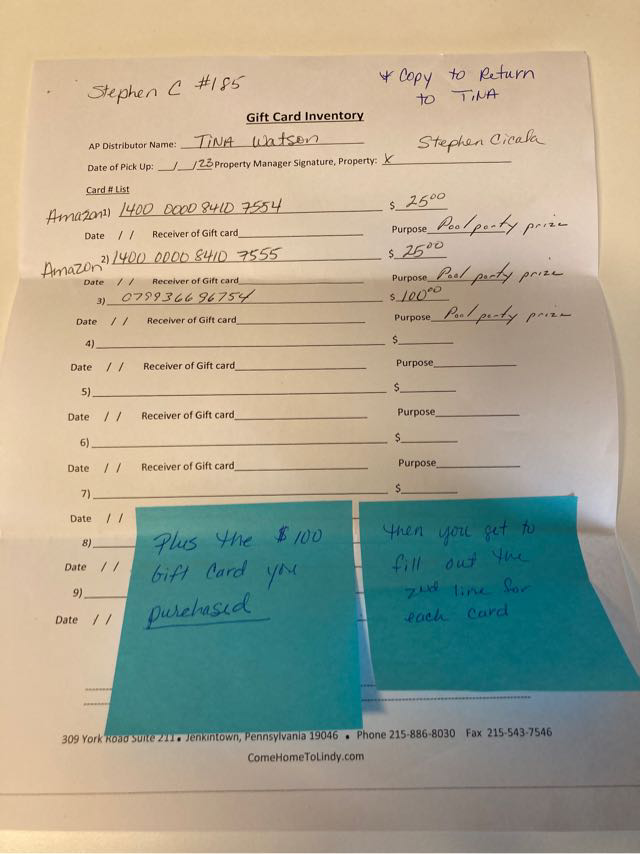 Stephen C #185
* Copy to Return
to TINA
Gift Card Inventory
AP Distributor Name: TINA Watson
Stephen Cicala
Date of Pick Up: __/__/23 Property Manager Signature, Property: X
Card # List
Amazon 1) 1400 0000 8410 7554 $ 25.00
Date / / Receiver of Gift card Purpose Pool party prize
Amazon 2) 1400 0000 8410 7555 $ 25.00
Date / / Receiver of Gift card Purpose Pool party prize
3) 079936696754 $ 100.00
Date / / Receiver of Gift card Purpose Pool party prize
4) $
Date / / Receiver of Gift card Purpose
5) $
Date / / Receiver of Gift card Purpose
6) $
Date / / Receiver of Gift card Purpose
7) $
Date / /
8)
Date / /
9)
Date / /
Plus the $100
Gift Card you
purchased
then you get to
fill out the
2nd line for
each card
309 York Road Suite 211 • Jenkintown, Pennsylvania 19046 • Phone 215-886-8030 Fax 215-543-7546
ComeHomeToLindy.com